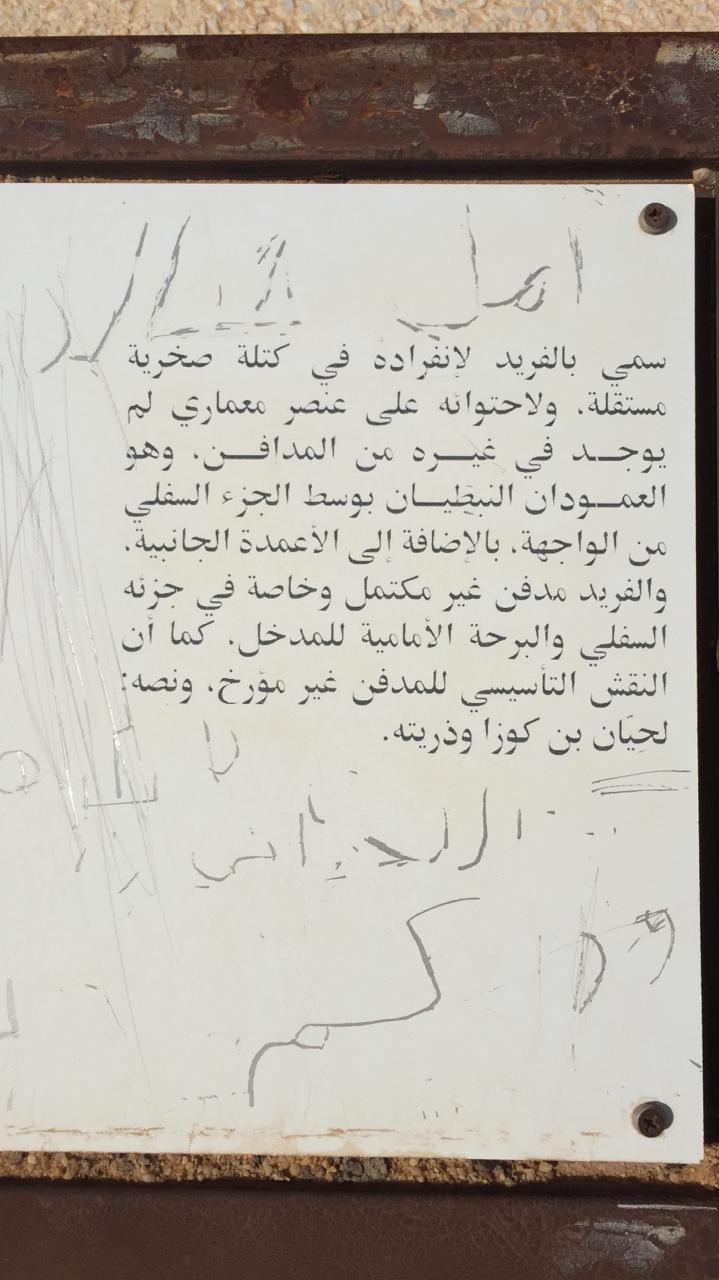 اهل
سمي بالفريد لإنفراده في كتلة صخرية
مستقلة، ولاحتوائه على عنصر معماري لم
يوجــد في غيــره من المدافــن، وهو
العمــودان النبطيــان بوسط الجزء السفلي
من الواجهة، بالإضافة إلى الأعمدة الجانبية.
والفريد مدفن غير مكتمل وخاصة في جزئه
السفلي والبرحة الأمامية للمدخل. كما أن
النقش التأسيسي للمدفن غير مؤرخ، ونصه:
لحيّان بن كوزا وذريته.